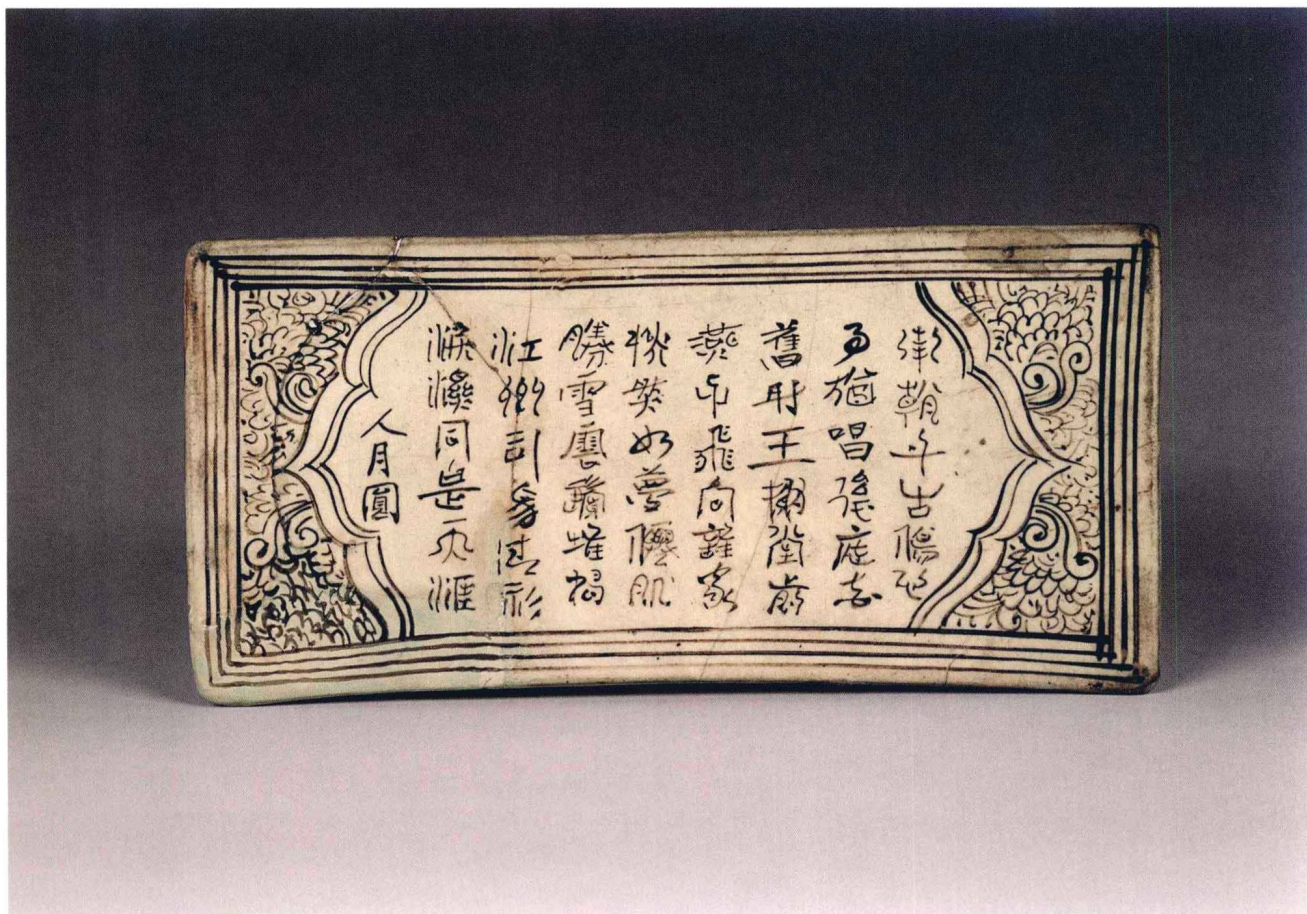 朝千古傷心
事猶唱後庭花
舊时王榭堂前
燕子飛向誰家
恍然如夢僊肌
勝雪雲鬢堆鴉
江州司馬清衫
淚濕同是天涯
人月圓